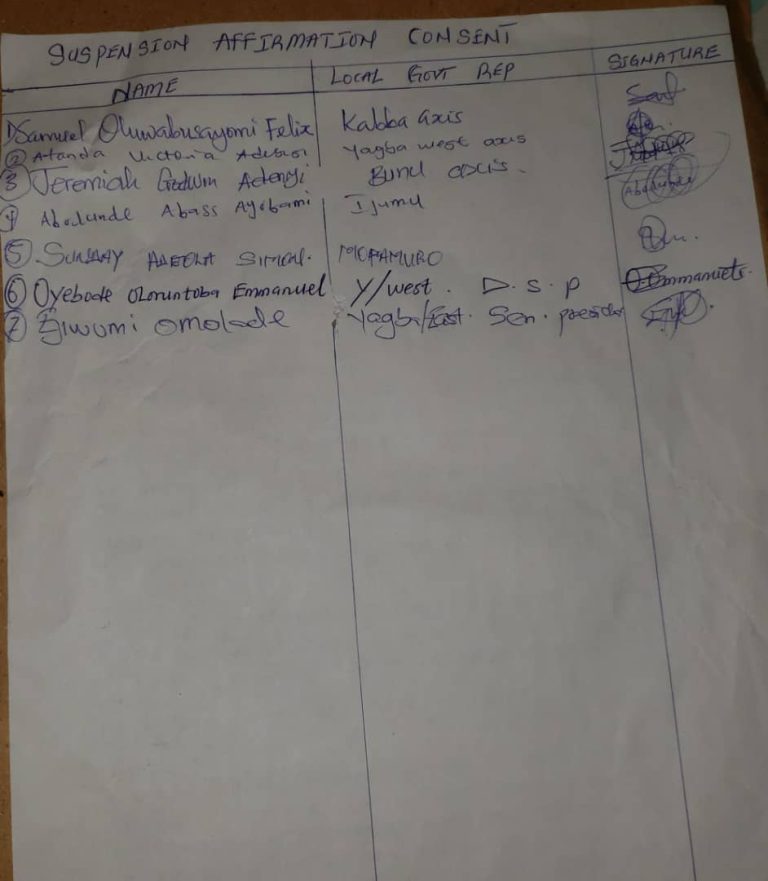 SUSPENSION AFFIRMATION CONSENT
NAME LOCAL GOVT REP SIGNATURE
1) Samuel Oluwabusayomi Felix Kabba axis
2 Atanda Victoria Adebisi Yagba west axis
3 Jeremiah Godwin Adeniyi Bunu axis.
4 Abodunde Abass Ayobami Ijumu Abodunde
5. SUNDAY ADEOLA SIMON. MOPAMURO
6 Oyebode Oloruntoba Emmanuel Y/west. D.S.P
7 Ejiwumi Omolade Yagba/East. Sen. president